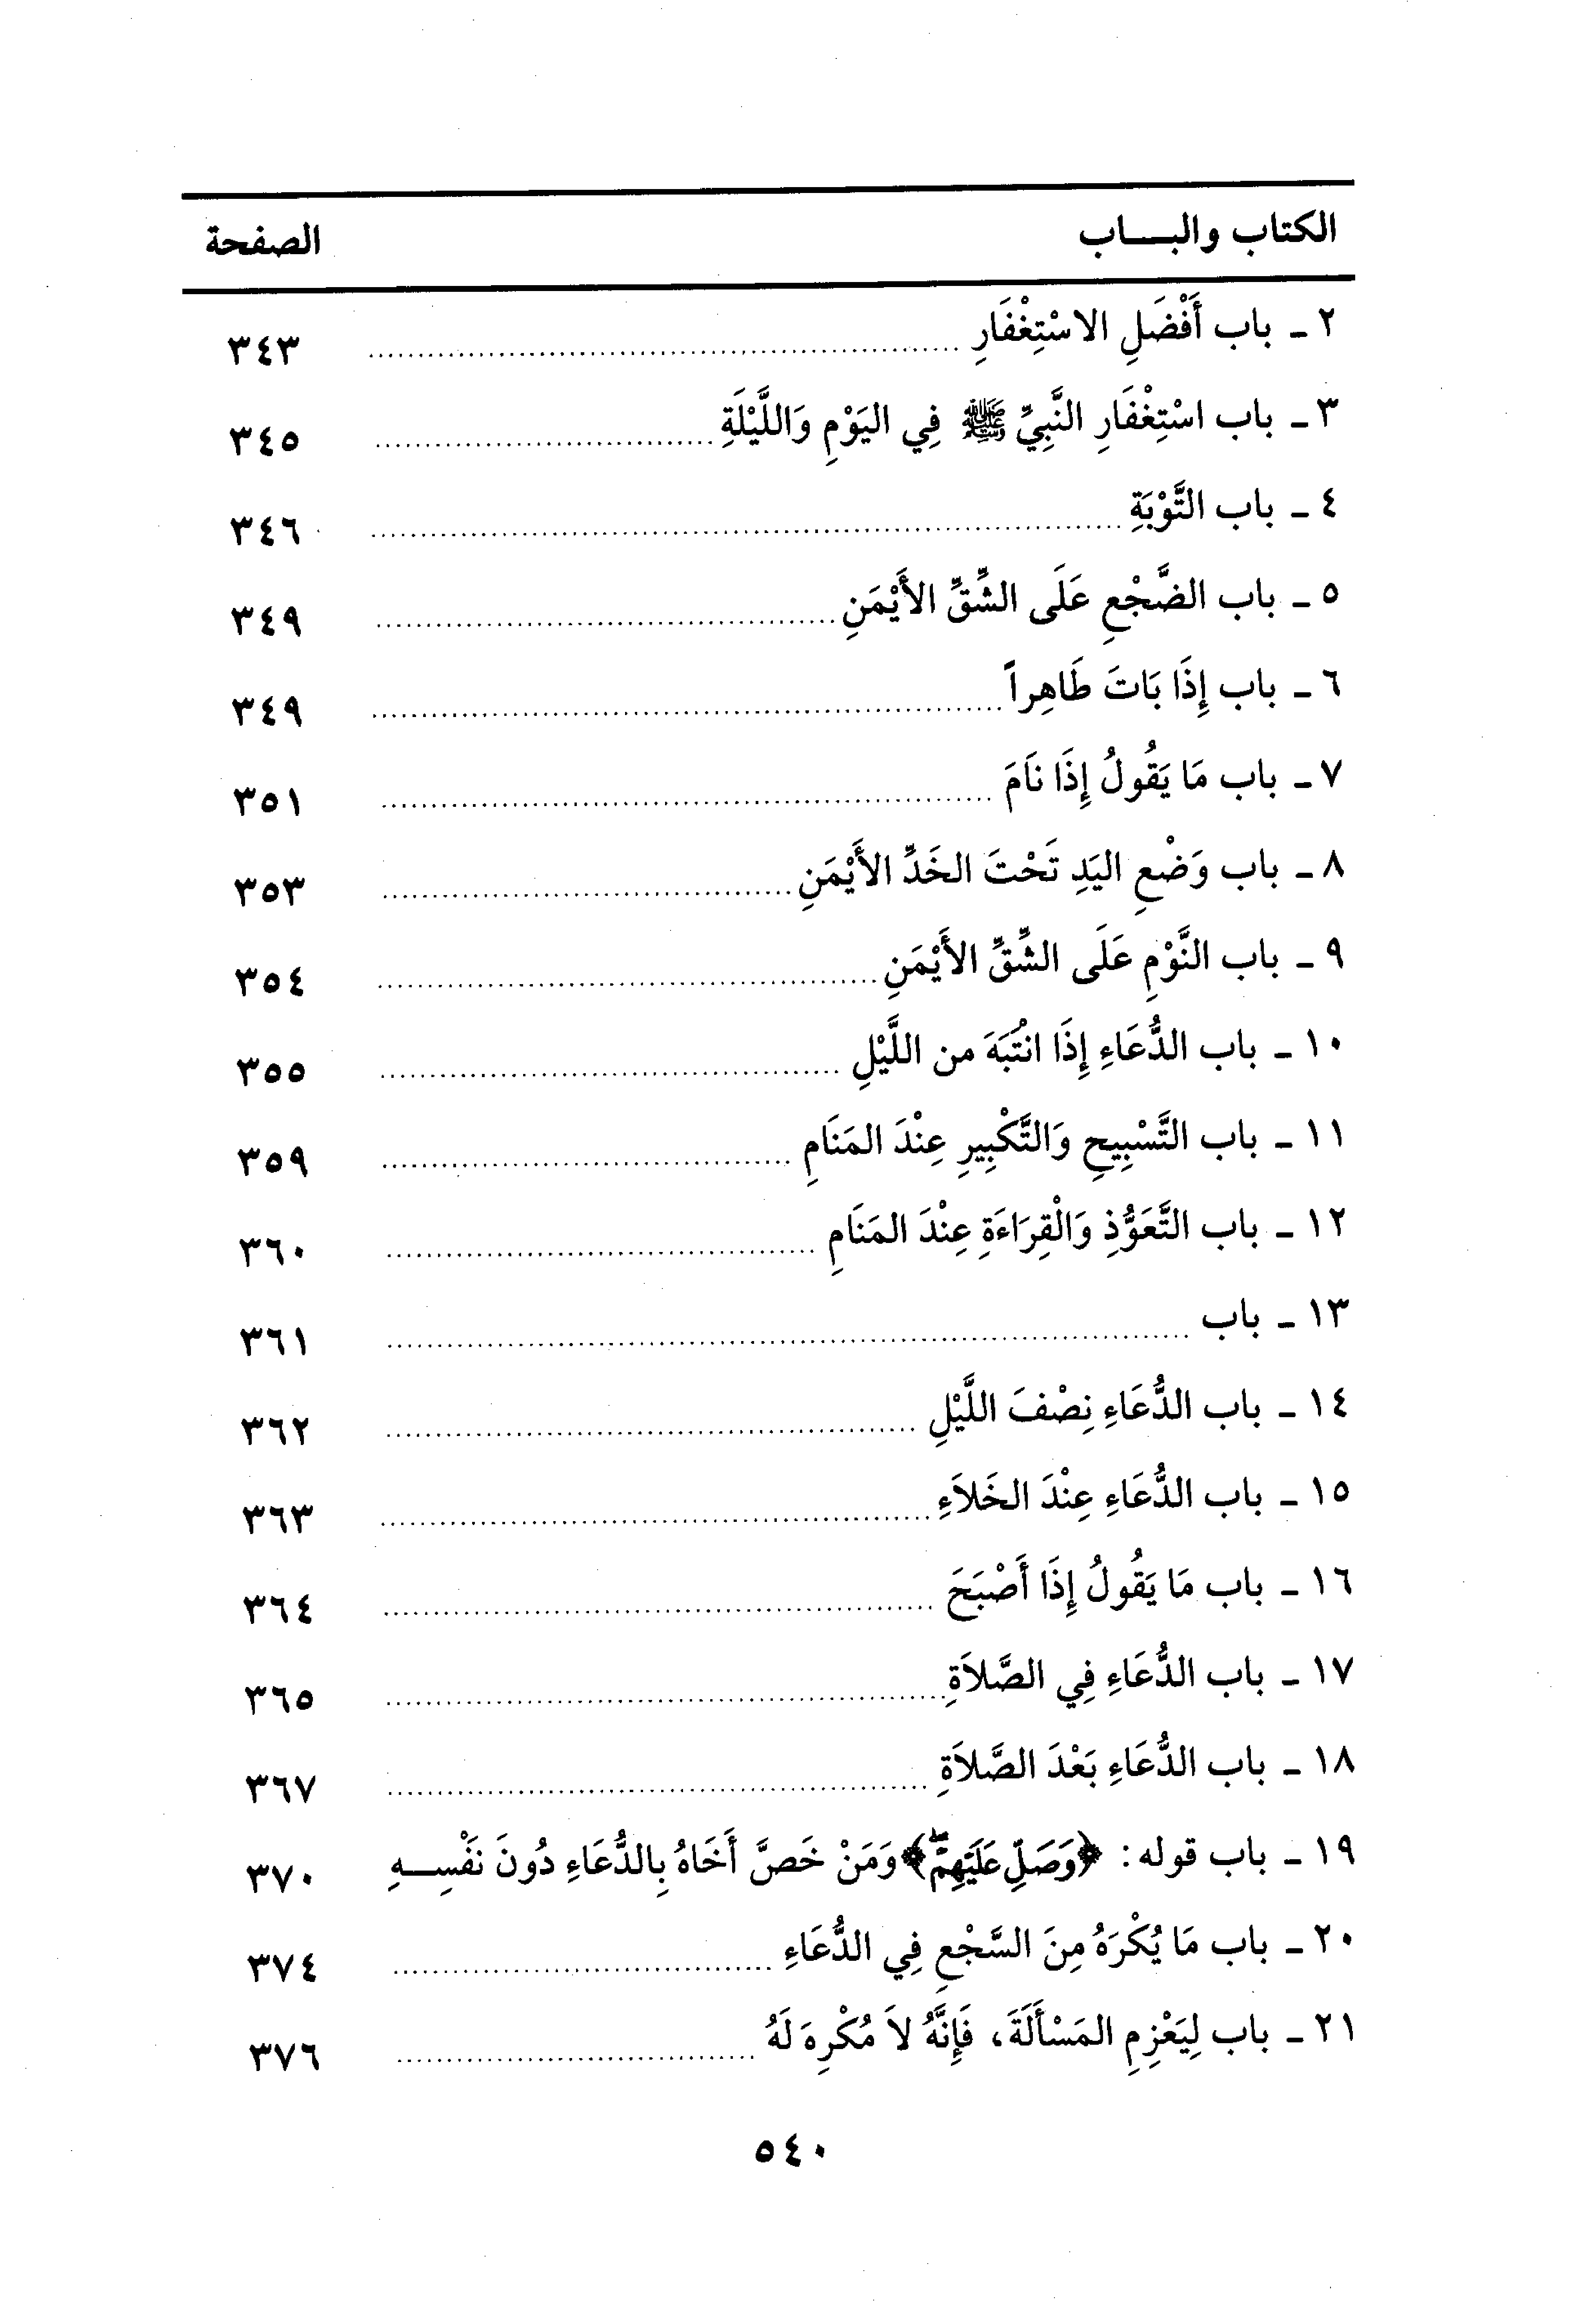 الكتاب والبـــاب الصفحة
٢ ـ باب أَفْضَلِ الاسْتِغْفَارِ ........ ٣٤٣
٣ ـ باب اسْتِغْفَارِ النَّبِيِّ ﷺ فِي اليَوْمِ وَاللَّيْلَةِ ........ ٣٤٥
٤ ـ باب التَّوْبَةِ ........ ٣٤٦
٥ ـ باب الضَّجْعِ عَلَى الشِّقِّ الأَيْمَنِ ........ ٣٤٩
٦ ـ باب إِذَا بَاتَ طَاهِراً ........ ٣٤٩
٧ ـ باب مَا يَقُولُ إِذَا نَامَ ........ ٣٥١
٨ ـ باب وَضْعِ اليَدِ تَحْتَ الخَدِّ الأَيْمَنِ ........ ٣٥٣
٩ ـ باب النَّوْمِ عَلَى الشِّقِّ الأَيْمَنِ ........ ٣٥٤
١٠ ـ باب الدُّعَاءِ إِذَا انْتُبَهَ من اللَّيْلِ ........ ٣٥٥
١١ ـ باب التَّسْبِيحِ وَالتَّكْبِيرِ عِنْدَ المَنَامِ ........ ٣٥٩
١٢ ـ باب التَّعَوُّذِ وَالْقِرَاءَةِ عِنْدَ المَنَامِ ........ ٣٦٠
١٣ ـ باب ........ ٣٦١
١٤ ـ باب الدُّعَاءِ نِصْفَ اللَّيْلِ ........ ٣٦٢
١٥ ـ باب الدُّعَاءِ عِنْدَ الخَلاَءِ ........ ٣٦٣
١٦ ـ باب مَا يَقُولُ إِذَا أَصْبَحَ ........ ٣٦٤
١٧ ـ باب الدُّعَاءِ فِي الصَّلاَةِ ........ ٣٦٥
١٨ ـ باب الدُّعَاءِ بَعْدَ الصَّلاَةِ ........ ٣٦٧
١٩ ـ باب قوله: ﴿وَصَلِّ عَلَيْهِمْۖ﴾ وَمَنْ خَصَّ أَخَاهُ بِالدُّعَاءِ دُونَ نَفْسِـــهِ ٣٧٠
٢٠ ـ باب مَا يُكْرَهُ مِنَ السَّجْعِ فِي الدُّعَاءِ ........ ٣٧٤
٢١ ـ باب لِيَعْزِمِ المَسْأَلَةَ، فَإِنَّهُ لاَ مُكْرِهَ لَهُ ........ ٣٧٦
٥٤٠